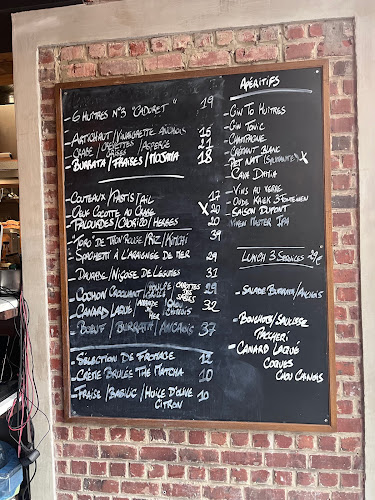 - 6 HUITRES N°3 "CADORET" 19
- ARTICHAUT / VINAIGRETTE ANCHOIS 15
- CRABE / CREVETTES GRISES / ASPERGE 17
- BURRATA / FRAISES / MOJAMA 18
- COUTEAUX / PASTIS / AIL 17
- OEUF COCOTTE AU CRABE X 20
- PALOURDES / CHORIZO / HERBES 20
- TORO DE THON ROUGE / RIZ / KIMCHI 39
- SPAGHETTI À L'ARAIGNÉE DE MER 29
- DAURADE / NIÇOISE DE LÉGUMES 31
- COCHON CROQUANT / POULPE GRILLÉ / CAROTTES DES SABLES 29
- CANARD LAQUÉ / DE MER / CHOU CHINOIS 32
- BOEUF / BURRATA / ANCHOIS 37
- SÉLECTION DE FROMAGE 12
- CRÈME BRULÉE THÉ MATCHA 10
- FRAISE / BASILIC / HUILE D'OLIVE CITRON 10
APÉRITIFS
- GIN TO HUITRES
- GIN TONIC
- CHAMPAGNE
- CRÉMANT BLANC
- PET NAT X
- CAVA
- VINS AU VERRE
- OUDE KRIEK 3 FONTEINEN
- SAISON DUPONT
- IPA
LUNCH 3 SERVICES 29€
- SALADE BURRATA / ANCHOIS
- BONCHOTS / SAUCISSE
PACCHERI
- CANARD LAQUÉ
COQUES
CHOU CHINOIS